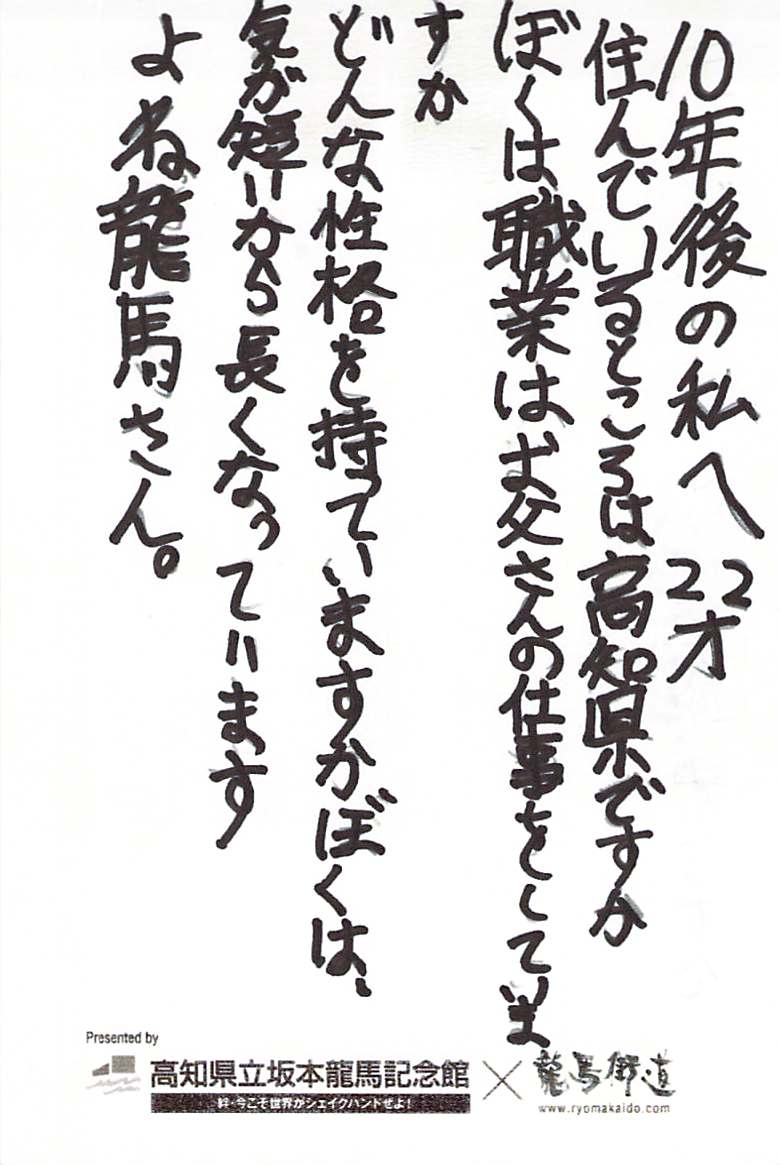 10年後の私へ 22才
住んでいるところは高知県ですか
ぼくは職業はお父さんの仕事をしていま
すか
どんな性格を持っていますかぼくは、
気が短いから長くなっています
よね龍馬さん。
Presented by
高知県立坂本龍馬記念館×龍馬街道
絆・今こそ世界がシェイクハンドぜよ！
www.ryomakaido.com